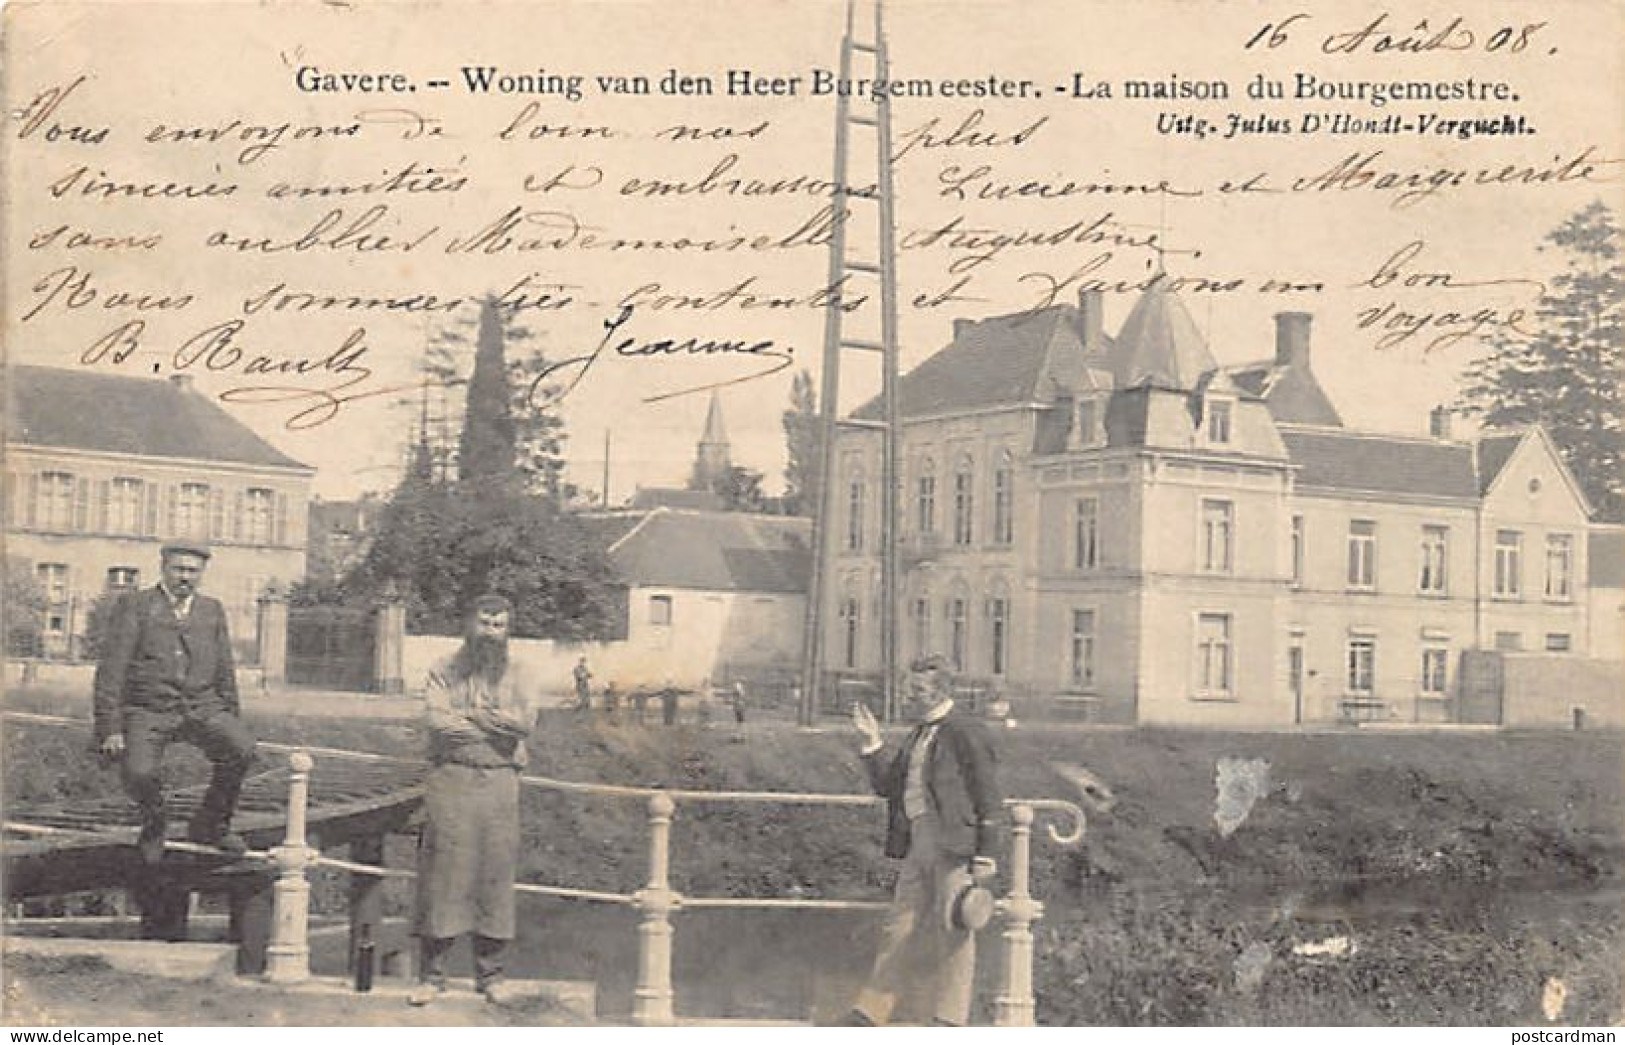 16 Août 08.
Gavere. -- Woning van den Heer Burgemeester. - La maison du Bourgemestre.
Uitg. Julus D'Hondt-Vergucht.
Vous envoyons de loin nos plus
sincères amitiés et embrassons Lucienne et Marguerite
sans oublier Mademoiselle Augustine
Nous sommes très contentes et faisons un bon
voyage
B. Rault Jeanne.
postcardman